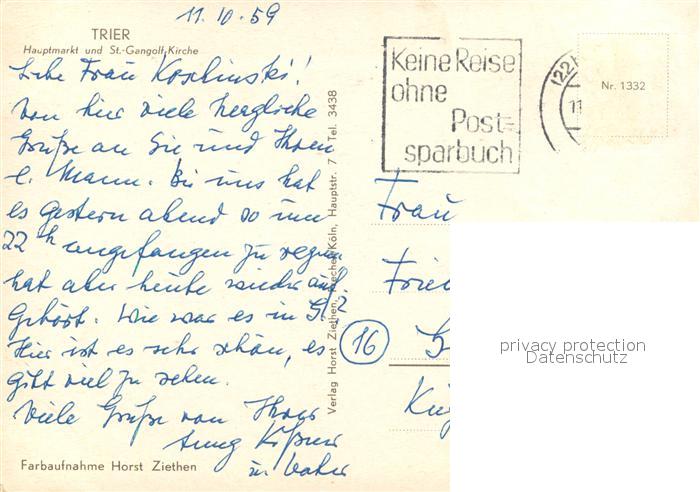 11.10.59
TRIER
Hauptmarkt und St.-Gangolf-Kirche
Liebe Frau Koschinski!
Von hier viele herzliche
Grüße an Sie und Ihren
l. Mann. Bei uns hat
es gestern abend so um
22 h angefangen zu regnen
hat aber heute wieder auf
gehört. Wie war es in
Hier ist es sehr schön, es
gibt viel zu sehen.
Viele Grüße von Ihrer
u. Vater
Farbaufnahme Horst Ziethen
Verlag Horst Ziethen, Frechen-Köln, Hauptstr. 7 Tel. 3438
Keine Reise
ohne
Post-
sparbuch
(22
11
Nr. 1332
Frau
Fried
(16)
privacy protection
Datenschutz